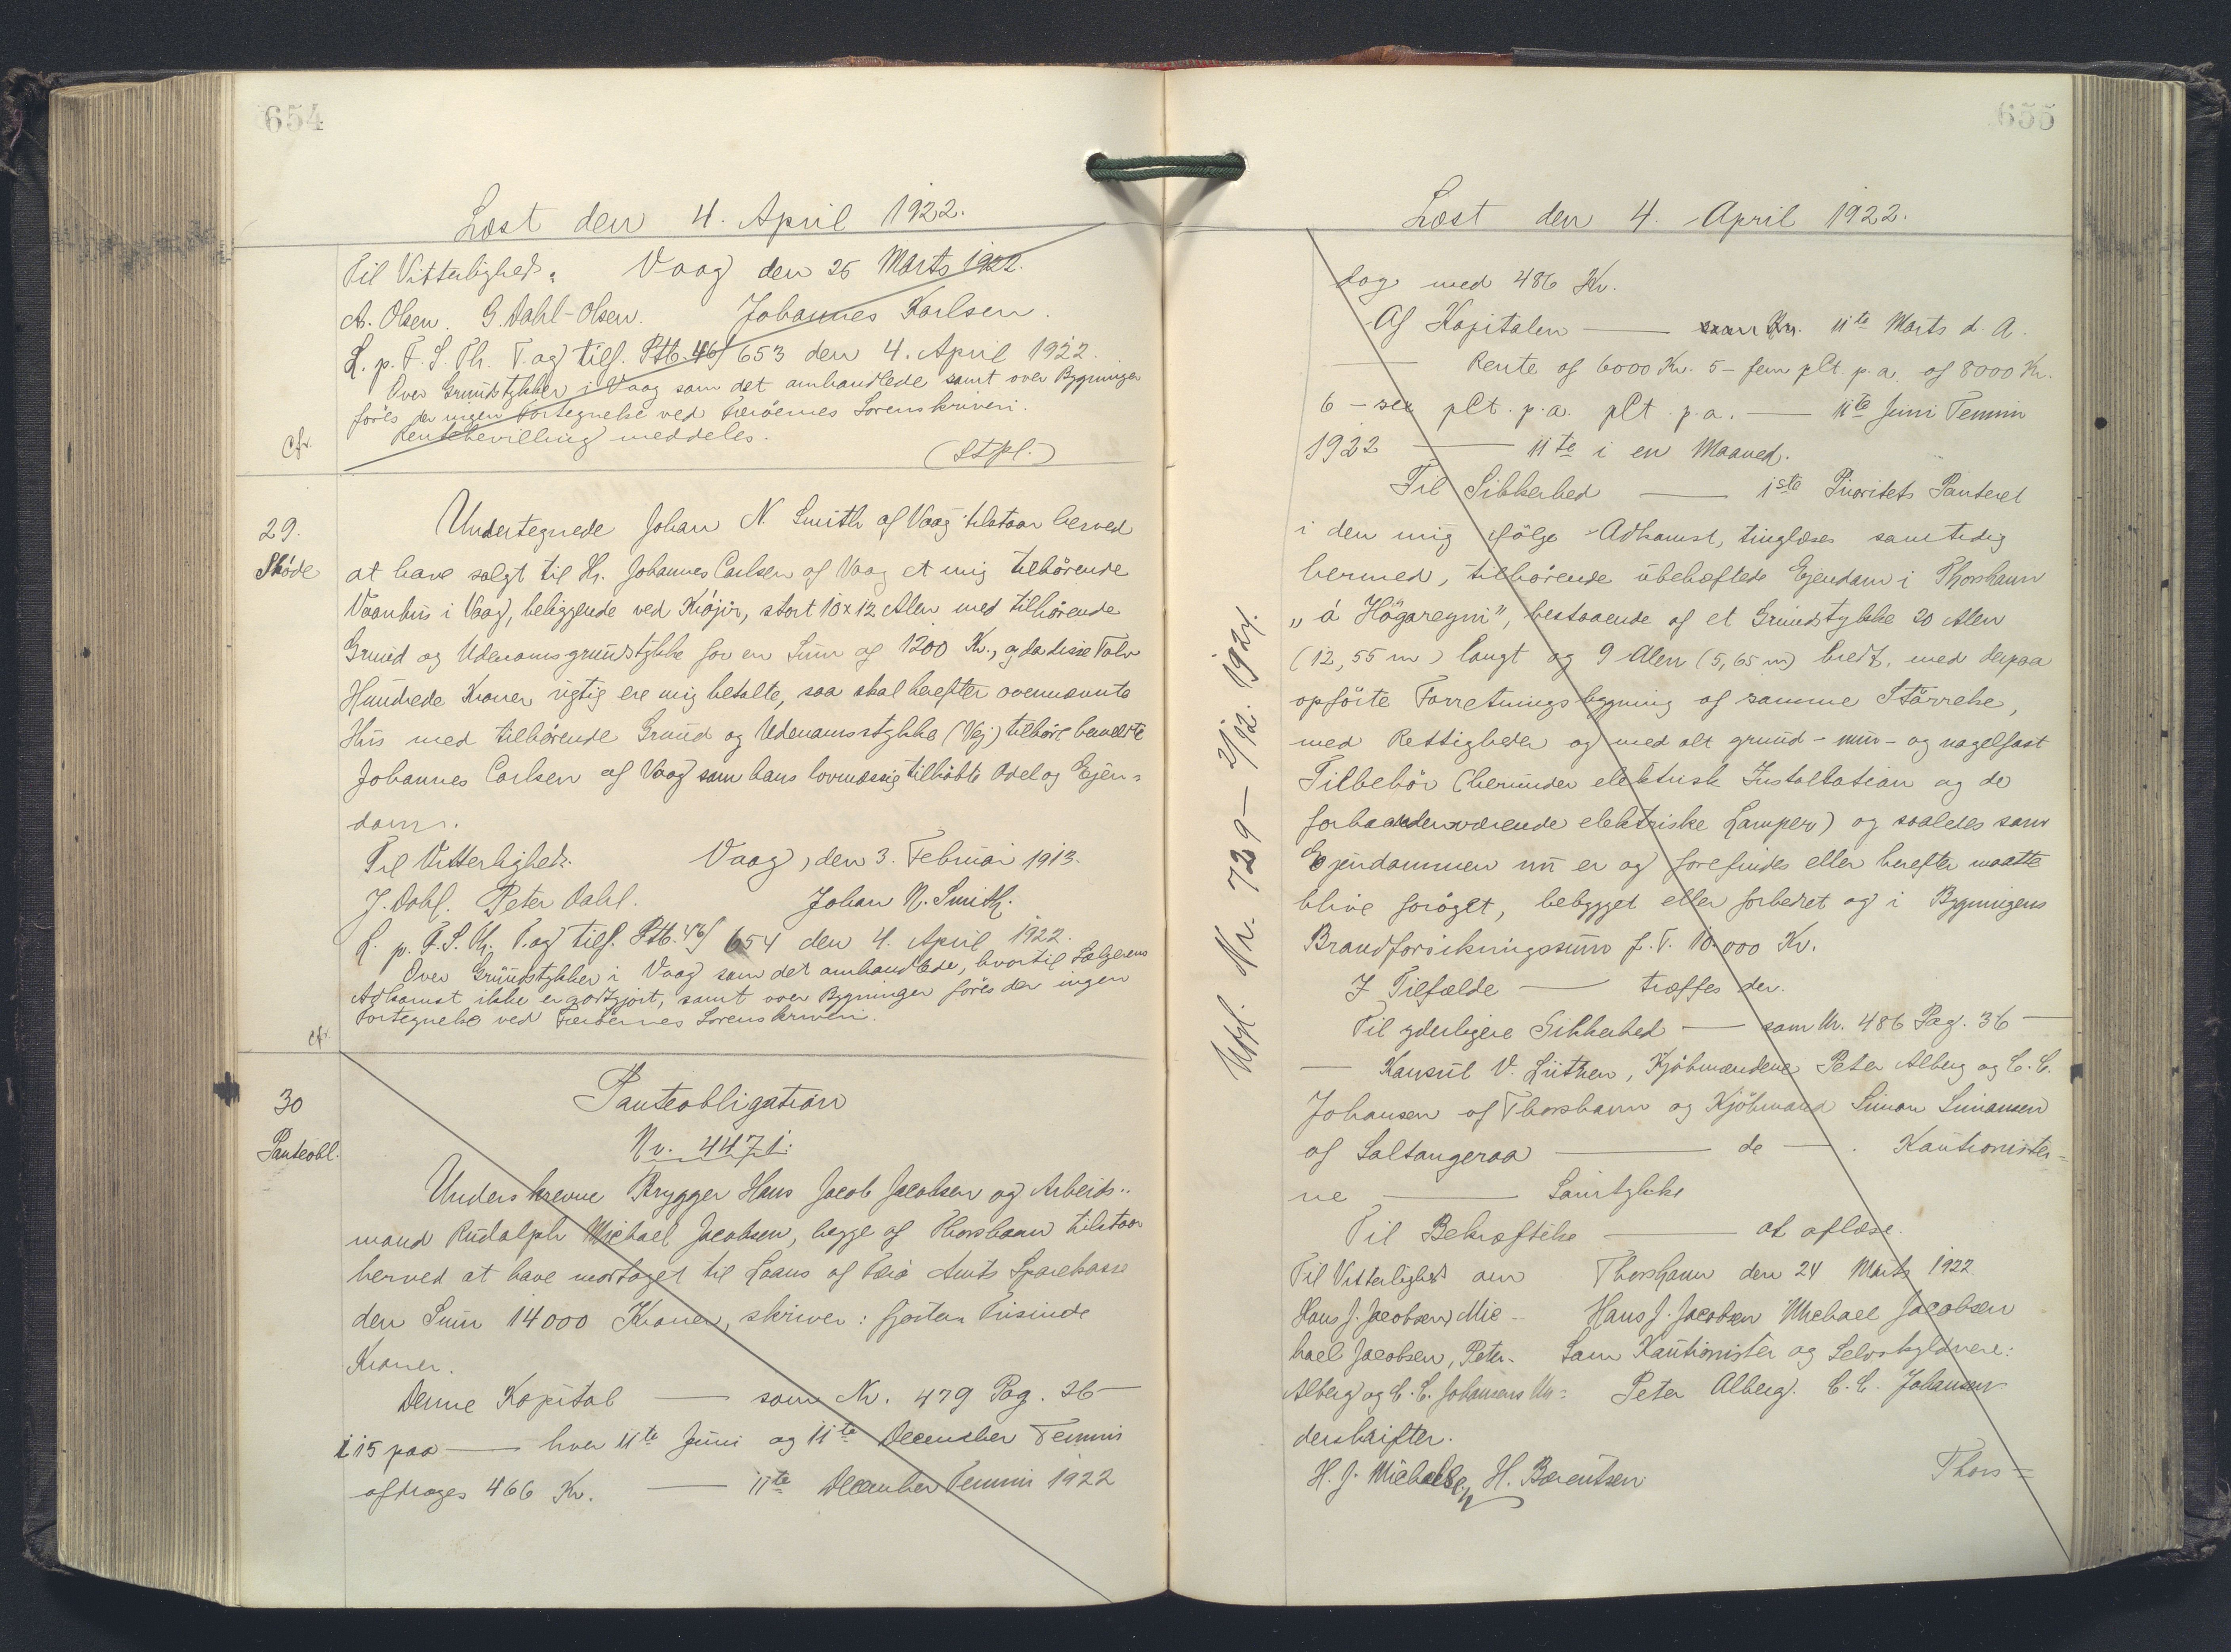 654
Læst den 4. April 1922.
Til Vitterlighed: Vaag den 25 Marts 1922.
A. Olsen. G. Dahl-Olsen. Johannes Karlsen.
L. p. F. S. Th. T. og tilf. Ptb. 46/653 den 4. April 1922.
Over Grundstykker i Vaag som det omhandlede samt over Bygninger
føres der ingen Fortegnelse ved Færøernes Sorenskriveri.
Rentebevilling meddeles.
Cfr. (Stpl.)
29. Undertegnede Johan N. Smith af Vaag tilstaar herved
Skøde at have solgt til Hr. Johannes Carlsen af Vaag et mig tilhørende
Vaanhus i Vaag, beliggende ved Kiojir, stort 10 x 12 Alen med tilhørende
Grund og Udenomsgrundstykke for en Sum af 1200 Kr., og da disse Tolv
Hundrede Kroner rigtig ere mig betalte, saa skal herefter ovennævnte
Hus med tilhørende Grund og Udenomsstykke (Vej) tilhøre bemeldte
Johannes Carlsen af Vaag som hans lovmæssig tilkøbte Odel og Ejen=
dom.
Til Vitterlighed: Vaag, den 3. Februar 1913.
J. Dahl. Peter Dahl. Johan N. Smith.
L. p. F. S. Th. T. og tilf. Ptb. 46/654 den 4. April 1922.
Over Grundstykker i Vaag som det omhandlede, hvortil Sælgerens
Adkomst ikke er godtgjort, samt over Bygninger føres der ingen
Fortegnelse ved Færøernes Sorenskriveri.
Cfr.
30 Panteobligation
Panteobl. Nr. 4471.
Underskrevne Brygger Hans Jacob Jacobsen og Arbeids-
mand Rudolph Michael Jacobsen, begge af Thorshavn tilstaar
herved at have modtaget til Laans af Færø Amts Sparekasse
den Sum 14000 Kroner, skriver: fjorten Tusinde
Kroner.
Denne Kapital — som Nr. 479 Pag. 26 —
i 15 paa — hver 11te Juni og 11te December Termin
afdrages 466 Kr. — 11te December Termin 1922
655
Læst den 4. April 1922.
dog med 486 Kr.
Af Kapitalen — 11te Marts d. A.
— Rente af 6000 Kr. 5 - fem pCt. p. a. af 8000 Kr.
6 - sex pCt. p. a. pCt. p. a. — 11te Juni Termin
1922 — 11te i en Maaned.
Til Sikkerhed — 1ste Prioritets Panteret
i den mig ifølge Adkomst, tinglæses samtidig
hermed, tilhørende ubehæftede Ejendom i Thorshavn
„á Högareyni", bestaaende af et Grundstykke 20 Alen
(12,55 m) langt og 9 Alen (5,65 m) bredt, med derpaa
opførte Forretningsbygning af samme Størrelse,
med Rettigheder og med alt grund- mur- og nagelfast
Tilbehør (herunder elektrisk Installation og de
forhaandenværende elektriske Lamper) og saaledes som
Ejendommen nu er og forefindes eller herefter maatte
blive forøget, bebygget eller forbedret og i Bygningens
Brandforsikringssum f. T. 10.000 Kr.
I Tilfælde — træffes der.
Til yderligere Sikkerhed — som Nr. 486 Pag. 36 —
— Konsul V. Lützen, Kjøbmændene Peter Alberg og C. C.
Johansen af Thorshavn og Kjøbmand Simon Simonsen
af Saltangeraa — de — . Kautionister=
ne — Samtykke
Til Bekræftelse — at aflæse.
Til Vitterlighed om Thorshavn den 24 Marts 1922
Hans J. Jacobsen, Mic- Hans J. Jacobsen Michael Jacobsen
hael Jacobsen, Peter Som Kautionister og Selvskyldnere:
Alberg og C. C. Johansens Un= Peter Alberg. C. C. Johansen
derskrifter.
H. J. Michaelsen, H. Berentsen.
Thors=
Udsl. Nr. 729 - 2/12. 1924.